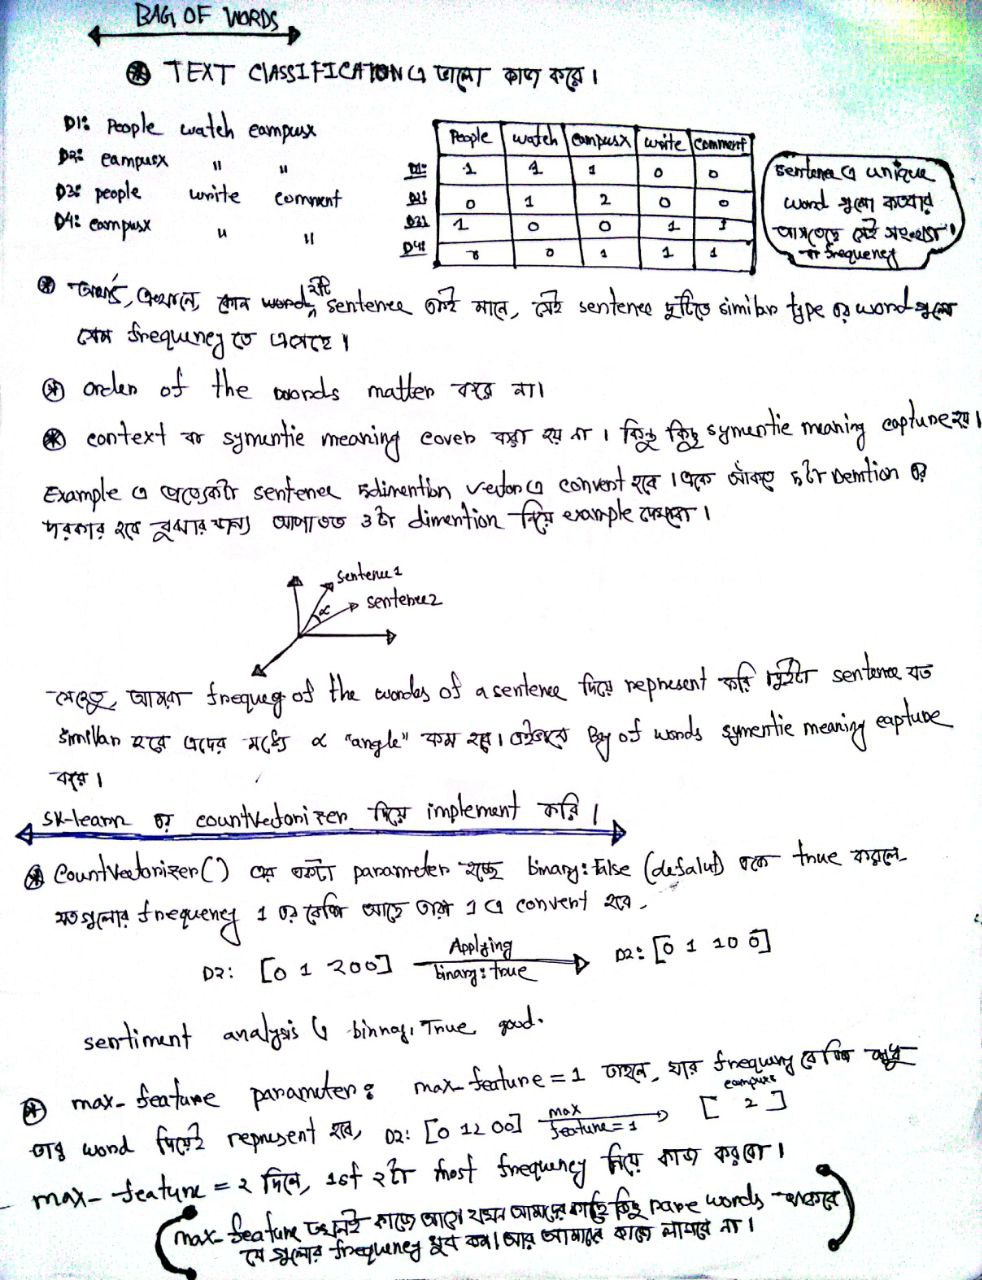 BAG OF WORDS
TEXT CLASSIFICATION এ ভালো কাজ করে।
D1: People watch campusx
D2: campusx " "
D3: people write comment
D4: campusx " "
People watch campusx write comment
D1: 1 1 1 0 0
D2: 0 1 2 0 0
D3: 1 0 0 1 1
D4: 0 1 1 1
sentence এ unique
word গুলো কতবার
আসতেছে সেই সংখ্যা
বা frequency
এখানে, কোন word sentence তাই মানে, সেই sentence দুটিতে similar type এর word গুলো
সেম frequency তে এসেছে।
order of the words matter করে না।
context বা symentic meaning cover করা হয় না। কিন্তু কিছু symentic meaning capture হয়।
Example এ প্রত্যেকটা sentence 5 dimention vector এ convert হবে। একে আঁকতে 5 টা Demtion এর
দরকার হবে বুঝার জন্য আপাতত 3 টা dimention নিয়ে example দেখবো।
sentence1
sentence2
α
যেহেতু, আমরা frequeg of the wordes of a sentence দিয়ে represent করি দুইটা sentence যত
similar হবে এদের মধ্যে α "angle" কম হবে। এইভাবে Bag of words symentic meaning capture
করে।
sk-learn এর countvectorizer দিয়ে implement করি।
CountVectorizer() এর একটা parameter হচ্ছে binary: False (defalut) একে true করলে
যতগুলোর frequency 1 এর বেশি আছে তারা 1 এ convert হবে.
D2: [0 1 2 0 0] Applying binary: true D2: [0 1 1 0 0]
sentiment analysis এ binnay: True good.
max_feature parameter: max_feature = 1 তাহলে, যার frequency বেশি শুধু
তার word দিয়েই represent হবে, D2: [0 1 2 0 0] max feature = 1 campusx [ 2 ]
max_feature = 2 দিলে, 1st 2 টা most frequency নিয়ে কাজ করবো।
max_feature তখনই কাজে আসে যখন আমাদের কাছে কিছু rare words থাকবে
যে গুলোর frequency খুব কম। আর আমাদের কাজে লাগবে না।